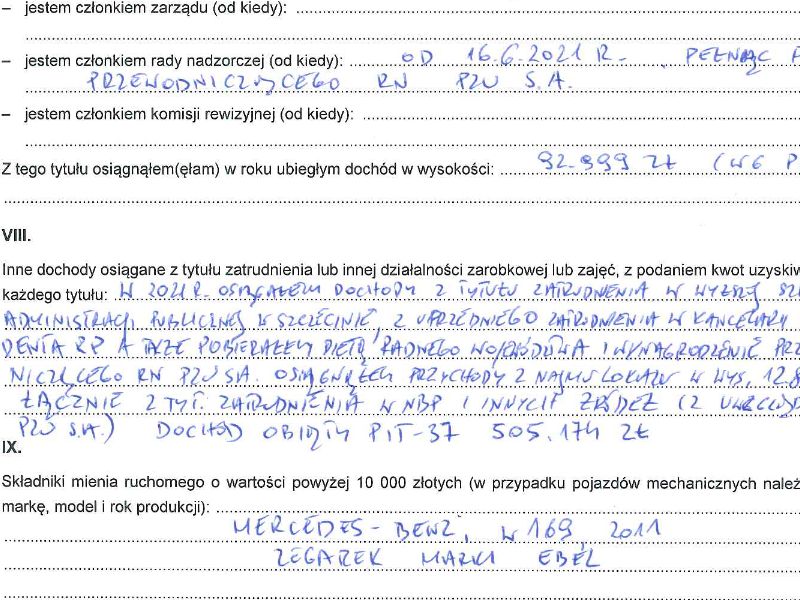 – jestem członkiem zarządu (od kiedy):
– jestem członkiem rady nadzorczej (od kiedy): OD 16.6.2021 R. PEŁNIĄC
PRZEWODNICZĄCEGO RN PZU S.A.
– jestem członkiem komisji rewizyjnej (od kiedy):
Z tego tytułu osiągnąłem(ęłam) w roku ubiegłym dochód w wysokości: 92.999 ZŁ (WG P
VIII.
Inne dochody osiągane z tytułu zatrudnienia lub innej działalności zarobkowej lub zajęć, z podaniem kwot uzyskiw
każdego tytułu: W 2021 R. OSIĄGAŁEM DOCHODY Z TYTUŁU ZATRUDNIENIA W WYŻSZEJ SZ
ADMINISTRACJI PUBLICZNEJ W SZCZECINIE, Z UPRZEDNIEGO ZATRUDNIENIA W KANCELARII
DENTA RP A TAKŻE POBIERAŁEM DIETĘ RADNEGO WOJEWÓDZTWA I WYNAGRODZENIE PRZE
NICZĄCEGO RN PZU SA. OSIĄGNĄŁEM PRZYCHODY Z NAJMU LOKALU W WYS. 12.8
ŁĄCZNIE Z TYT. ZATRUDNIENIA W NBP I INNYCH ŹRÓDEŁ (Z
PZU S.A.) DOCHÓD OBJĘTY PIT-37 505.174 ZŁ
IX.
Składniki mienia ruchomego o wartości powyżej 10 000 złotych (w przypadku pojazdów mechanicznych należ
markę, model i rok produkcji):
MERCEDES-BENZ, W 169, 2011
ZEGAREK MARKI EBEL